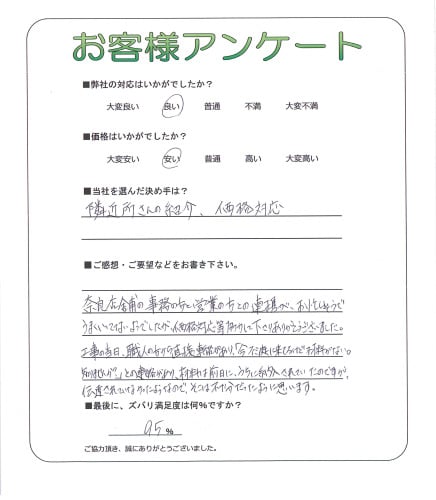 お客様アンケート
■弊社の対応はいかがでしたか?
大変良い 良い 普通 不満 大変不満
■価格はいかがでしたか?
大変安い 安い 普通 高い 大変高い
■当社を選んだ決め手は?
隣近所さんの紹介、価格対応
■ご感想・ご要望などをお書き下さい。
奈良店舗の事務の方と営業の方との連携が、
うまくいってないようでしたが、価格対応等 して下さりありがとうございました。
工事の当日、職人の方から直接 があり、「今 に来ているが材料がない。
」との 前日に、うちに
伝達されていなかったようなので、そこは不十分だったように思います。
■最後に、ズバリ満足度は何%ですか?
95%
ご協力頂き、誠にありがとうございました。